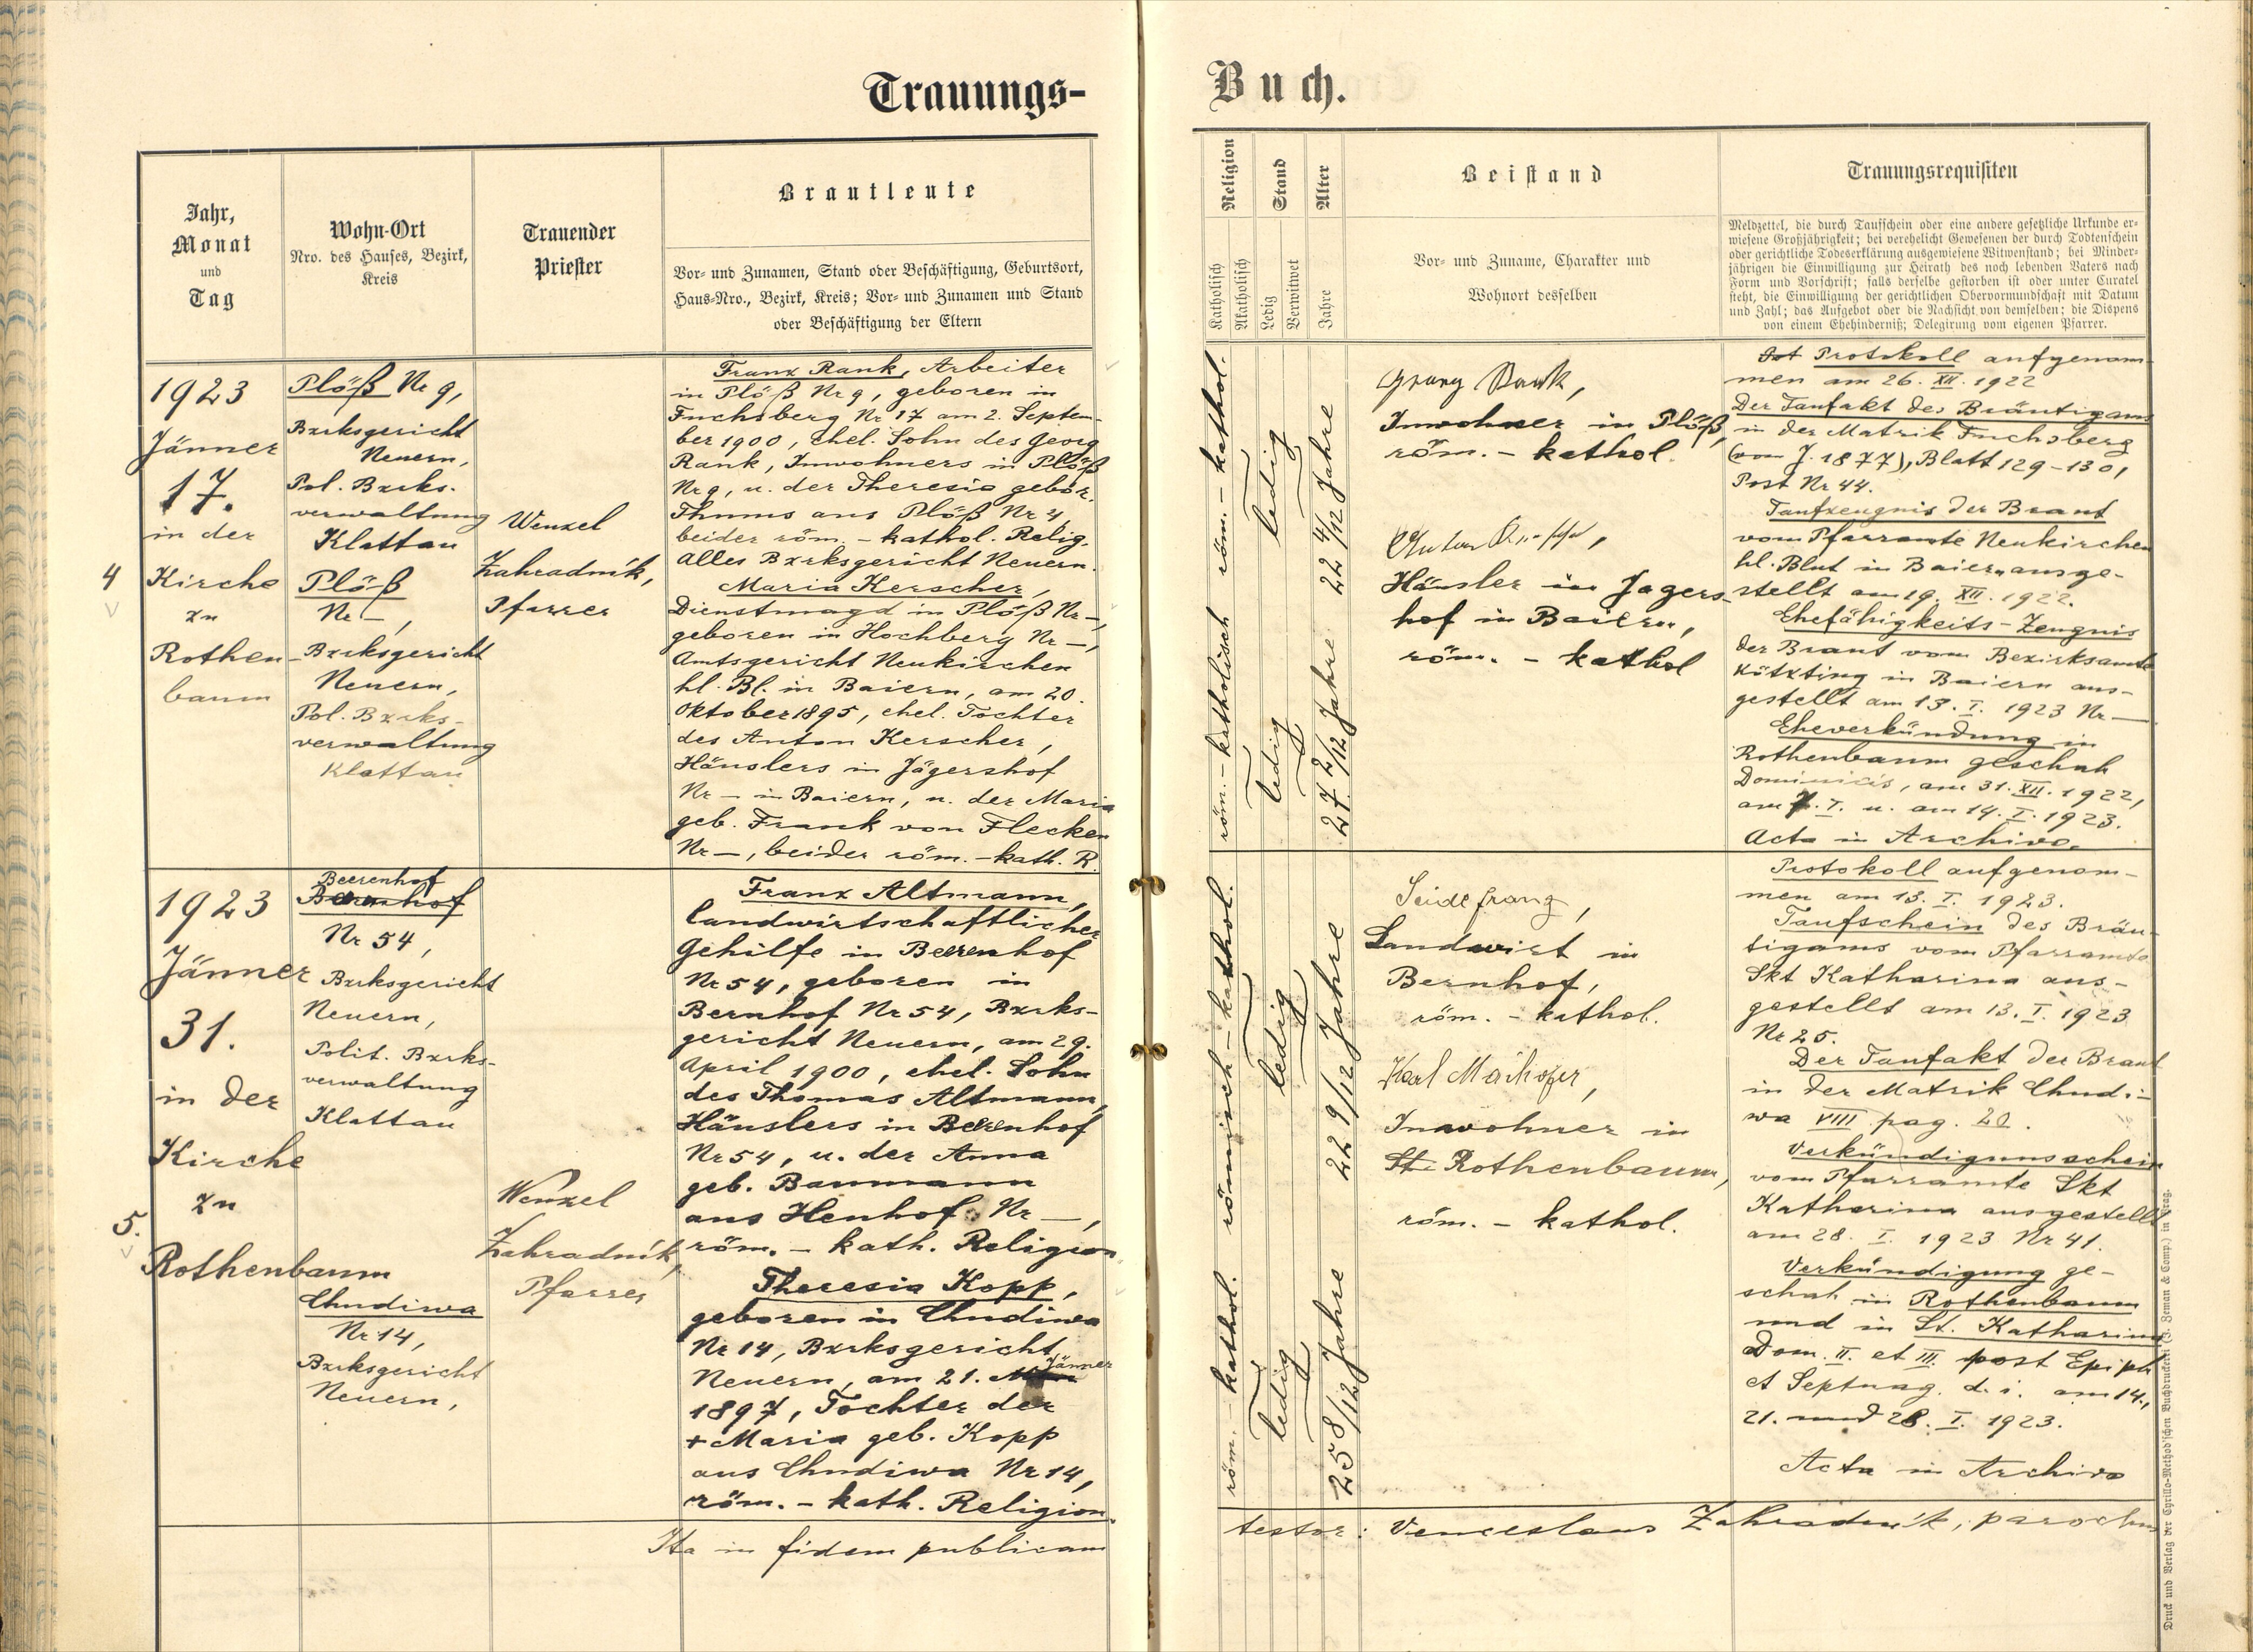 Trauungs-
Buch.
Jahr,
Monat
und
Tag
Wohn-Ort
Nro. des Hauses, Bezirk,
Kreis
Trauender
Priester
Brautleute
Vor- und Zunamen, Stand oder Beschäftigung, Geburtsort,
Haus-Nro., Bezirk, Kreis; Vor- und Zunamen und Stand
oder Beschäftigung der Eltern
Religion
Katholisch
Akatholisch
Stand
Ledig
Verwitwet
Alter
Jahre
Beistand
Vor- und Zuname, Charakter und
Wohnort desselben
Trauungsrequisiten
Meldzettel, die durch Taufschein oder eine andere gesetzliche Urkunde er-
wiesene Großjährigkeit; bei verehelicht Gewesenen der durch Todtenschein
oder gerichtliche Todeserklärung ausgewiesene Witwenstand; bei Minder-
jährigen die Einwilligung zur Heirath des noch lebenden Vaters nach
Form und Vorschrift; falls derselbe gestorben ist oder unter Curatel
steht, die Einwilligung der gerichtlichen Obervormundschaft mit Datum
und Zahl; das Aufgebot oder die Nachsicht von demselben; die Dispens
von einem Ehehinderniß; Delegirung vom eigenen Pfarrer.
4
1923
Jänner
17.
in der
Kirche
zu
Rothen-
baum
Plöß Nr 9,
Bzrksgericht
Neuern,
Pol. Bzrks-
verwaltung
Klattau
Plöß
Nr –,
Bzrksgericht
Neuern,
Pol. Bzrks-
verwaltung
Klattau
Wenzel
Zahradník,
Pfarrer
Franz Rank, Arbeiter
in Plöß Nr 9, geboren in
Fuchsberg Nr 17 am 2. Septem-
ber 1900, ehel. Sohn des Georg
Rank, Inwohners in Plöß
Nr 9, u. der Theresia gebor.
Thums aus Plöß Nr 4,
beider röm. – kathol. Relig.
Alles Bzrksgericht Neuern.
Maria Kerscher,
Dienstmagd in Plöß Nr –,
geboren in Hochberg Nr –,
Amtsgericht Neukirchen
hl. Bl. in Baiern, am 20.
Oktober 1895, ehel. Tochter
des Anton Kerscher,
Häuslers in Jägershof
Nr – in Baiern, u. der Maria
geb. Frank von Flecken
Nr –, beider röm. – kath. R.
röm. – kathol.
ledig
22 4/12 Jahre
röm. – katholisch
ledig
27 2/12 Jahre
Georg Rank,
Inwohner in Plöß,
röm. – kathol.
Anton
Häusler in Jagers-
hof in Baiern,
röm. – kathol
Protokoll aufgenom-
men am 26. XII. 1922
Der Taufakt des Bräutigams
in der Matrik Fuchsberg
(vom J. 1877), Blatt 129–130,
Post Nr 44.
Taufzeugnis der Braut
vom Pfarramte Neukirchen
hl. Blut in Baiern ausge-
stellt am 19. XII. 1922.
Ehefähigkeits – Zeugnis
der Braut vom Bezirksamte
Kötzting in Baiern aus-
gestellt am 13. I. 1923 Nr –
Eheverkündung in
Rothenbaum geschah
Dominicis, am 31. XII. 1922,
am 7. I. u. am 14. I. 1923.
Acta in Archivo.
5.
1923
Jänner
31.
in der
Kirche
zu
Rothenbaum
Beerenhof
Nr 54,
Bzrksgericht
Neuern,
Polit. Bzrks-
verwaltung
Klattau
Chudiwa
Nr 14,
Bzrksgericht
Neuern,
Wenzel
Zahradník,
Pfarrer
Franz Altmann,
landwirtschaftlicher
Gehilfe in Beerenhof
Nr 54, geboren in
Bernhof Nr 54, Bzrks-
gericht Neuern, am 29.
April 1900, ehel. Sohn
des Thomas Altmann,
Häuslers in Beerenhof
Nr 54, u. der Anna
geb. Baumann
aus Henhof Nr –,
röm. – kath. Religion
Theresia Kopp,
geboren in Chudiwa
Nr 14, Bzrksgericht
Neuern, am 21. Jänner
1897, Tochter der
+ Maria geb. Kopp
aus Chudiwa Nr 14,
röm. – kath. Religion.
römisch – kathol.
ledig
22 9/12 Jahre
röm. – kathol.
ledig
25 8/12 Jahre
Seidl Franz,
Landwirt in
Bernhof,
röm. – kathol.
Karl Maihofer,
Inwohner in
Rothenbaum,
röm. – kathol.
Protokoll aufgenom-
men am 13. I. 1923.
Taufschein des Bräu-
tigams vom Pfarramte
Skt Katharina aus-
gestellt am 13. I. 1923
Nr 25.
Der Taufakt der Braut
in der Matrik Chudi-
wa VIII pag. 20.
Verkündigunsschein
vom Pfarramte Skt
Katharina ausgestellt
am 28. I. 1923 Nr 41.
Verkündigung ge-
schah in Rothenbaum
und in St. Katharina
Dom. II. et III. post Epiph
et Septuag. d. i. am 14.,
21. und 28. I. 1923.
Acta in Archivo
Ita in fidem publicam
testor: Venceslaus Zahradník, parochus
Druck und Verlag der Cyrillo-Method'schen Buchdruckerei (J. Zeman & Comp.) in Prag.